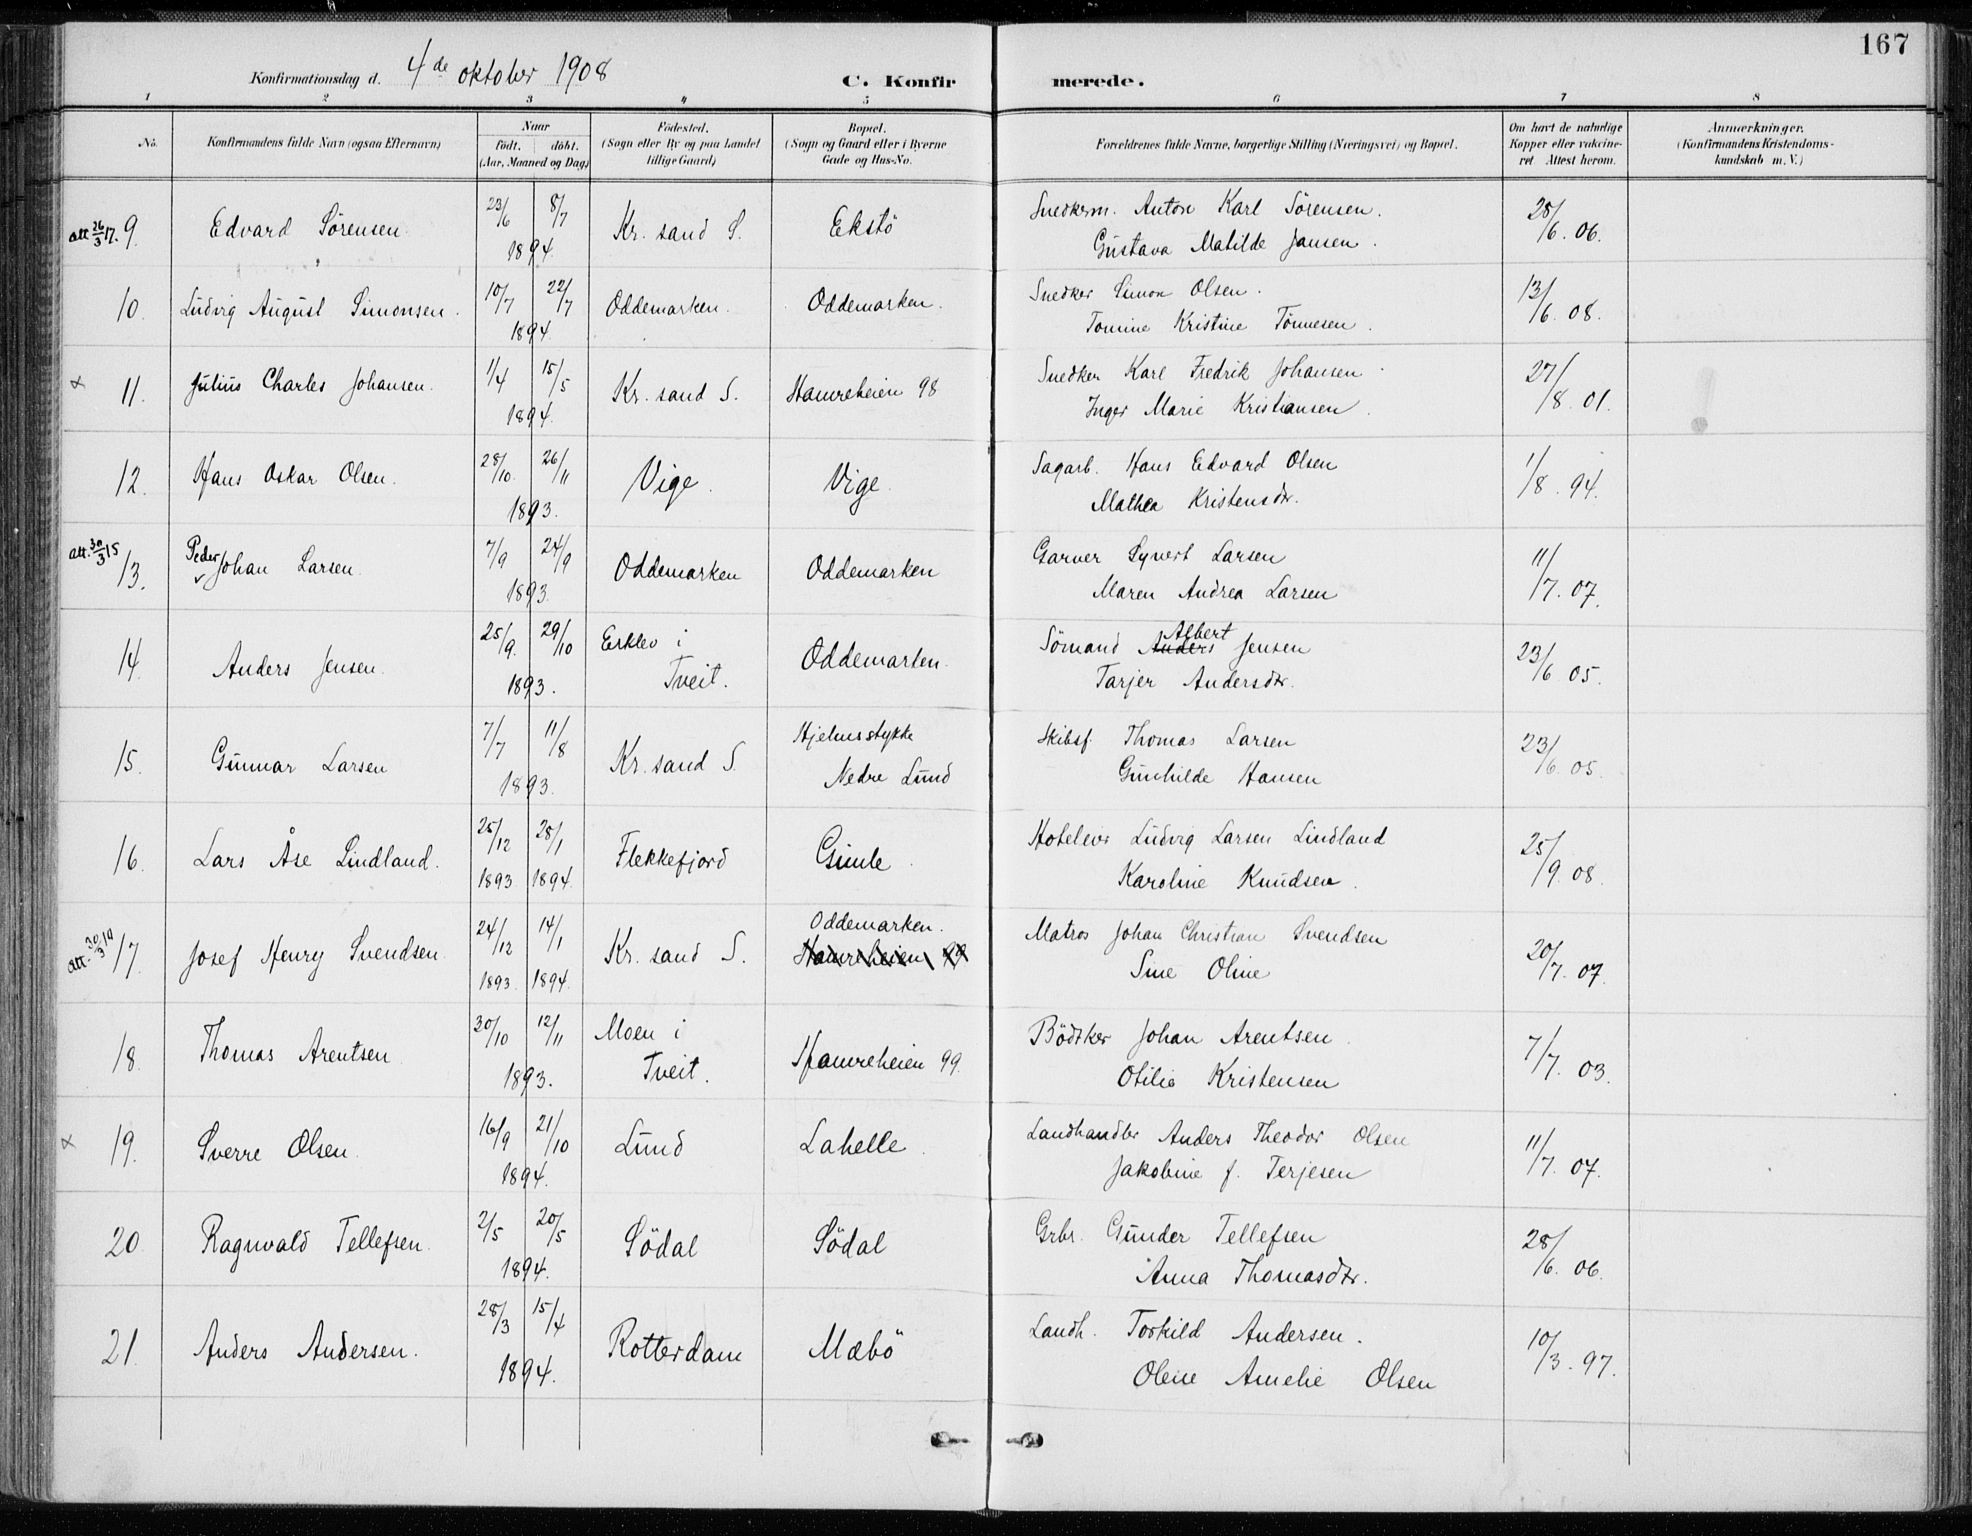 167
Konfirmationsdag d. 4de oktober 1908 C. Konfirmerede.
1 2 3 4 5 6 7 8
No. Konfirmandens fulde Navn (ogsaa Efternavn) Naar født. døbt. (Aar, Maaned og Dag) Fødested. (Sogn eller By og paa Landet tillige Gaard) Bopæl. (Sogn og Gaard eller i Byerne Gade og Hus-No. Forældrenes fulde Navne, borgerlige Stilling (Næringsvei) og Bopæl. Om havt de naturlige Kopper eller vakcineret. Attest herom. Anmærkninger. (Konfirmandens Kristendomskundskab m. V.)
att 26/3 17. 9. Edvard Sörensen. 23/6 8/7 1894. Kr. sand S. Ekstö Snedkerm. Anton Karl Sörensen. 28/6. 06.
Gustava Matilde Jansen.
10. Ludvig August Simonsen. 10/7 22/7 1894. Oddemarken. Oddemarken. Snedker Simon Olsen. 13/6. 08.
Tomine Kristine Tönnesen.
x 11. Julius Charles Johansen. 1/4 15/5 1894. Kr. sand S. Hamreheien 98 Snedker Karl Fredrik Johansen 27/8. 01.
Inger Marie Kristiansen.
12. Hans Oskar Olsen. 28/10. 26/11 1893. Vige. Vige. Sagarb. Hans Edvard Olsen 1/8. 94.
Mathea Kristensdtr.
att. 30/3 15 13. Peder Johan Larsen. 7/9 24/9 1893. Oddemarken Oddemarken Garver Syvert Larsen 11/7. 07.
Maren Andrea Larsen
14. Anders Jensen. 25/9. 29/10 1893. Erklev i Tveit. Oddemarken. Sömand Anders Albert Jensen 23/6. 05.
Tarjer Andersdtr.
15. Gunnar Larsen 7/7 11/8 1893. Kr. sand S. Hjelmsstykke Nedre Lund Skibsf. Thomas Larsen 23/6. 05.
Gunhilde Hansen
16. Lars Åse Lindland. 25/12 1893. 28/1 1894. Flekkefjord Gimle. Hoteleier Ludvig Larsen Lindland 25/9. 08.
Karoline Knudsen.
att. 30/3 19 17. Josef Henry Svendsen 24/12 1893. 14/1 1894. Kr. sand S. Oddemarken. Hamreheien 99 Matros Johan Christian Svendsen 20/7. 07.
Sine Oline
18. Thomas Arentsen 30/10 12/11 1893. Moen i Tveit. Hamreheien 99. Bödker Johan Arentsen. 7/7. 03.
Otilie Kristensen
x 19. Sverre Olsen. 16/9 21/10 1894. Lund Lahelle. Landhandler Anders Theodor Olsen 11/7. 07.
Jakobine f. Terjesen
20 Ragnvald Tellefsen. 2/5 20/5 1894. Södal Södal Grbr. Gunder Tellefsen 28/6. 06.
Anna Thomasdtr.
21. Anders Andersen. 28/3 15/4 1894. Rotterdam Mæbö Landh. Torkild Andersen. 10/3. 97.
Oleise Amelie Olsen